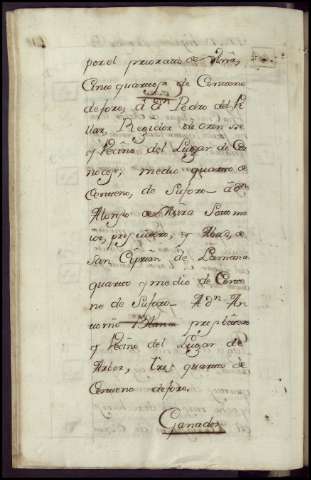 por el priorato de
Cinco quartos de Centeno
de foro, a Dn Pedro del Vi
llar, Regidor de Orense
y Vecino del Lugar de Ce
medio quarto de
Centeno, de Suforo a dn
Alonso de Neira Soto ma
ior, presvitero, y Abad, de
San Ciprian de
quarto y medio de Cente
no de Suforo A dn An
tonio Blanco presbitero
y Vecino del Lugar de
tres quartos de
Centeno de foro.
Ganados